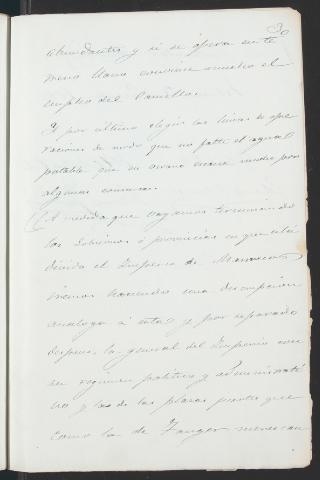 30
abundantes y si se opera en te
rreno llano conviene mucho el
empleo del
Y por último elegir las lineas de ope
raciones de modo que no falte el agua
potable que es escasa en
algunas comarcas.
(A medida que vayamos terminando
los Gobiernos ó provincias en que está
dividido el Imperio de Marruecos
iremos haciendo una descripcion
analoga á esta y por separado
despues, la general del Imperio con
su regimen politico y administrati
vo y las de las plazas fuertes que
como la de Tanger merezcan